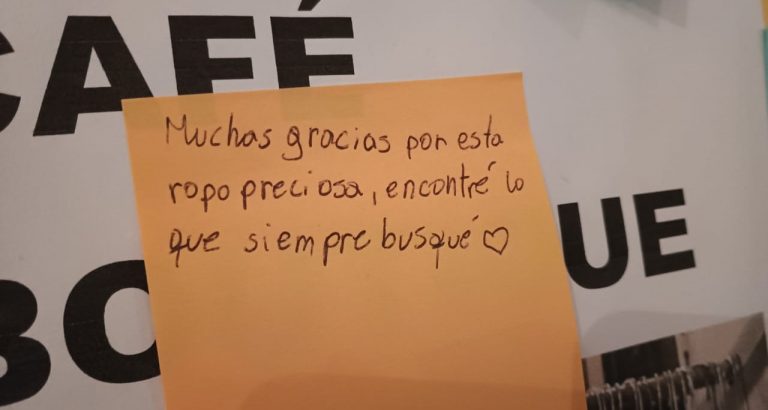 CAFÉ
Muchas gracias por esta
ropa preciosa, encontré lo
que siempre busqué ♡
BO
UE